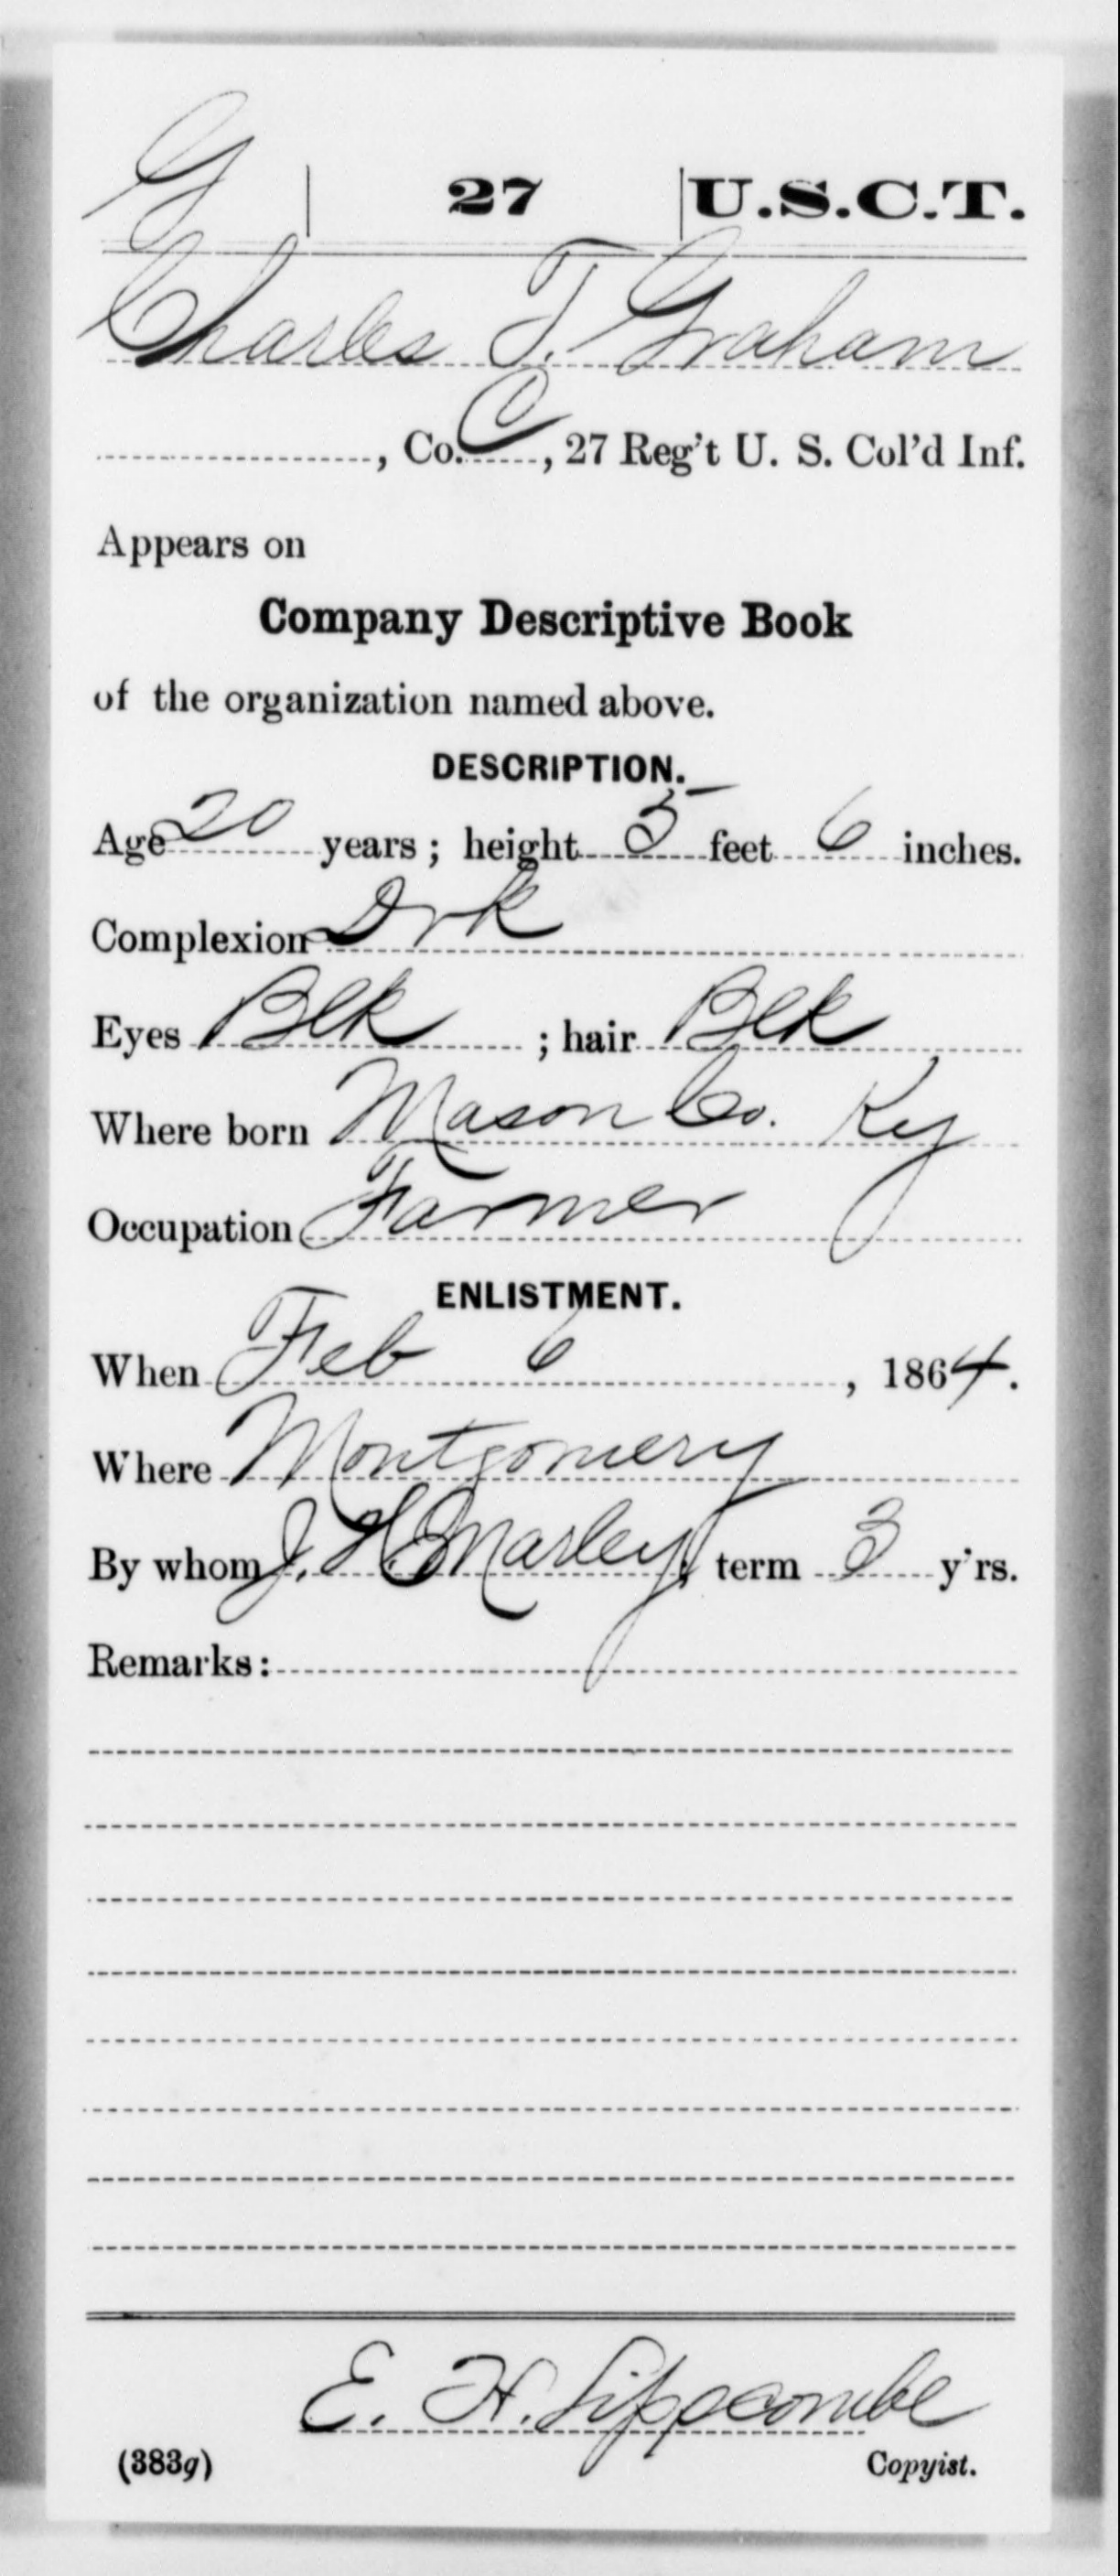 G | 27 | U.S.C.T.
Charles T. Graham
, Co. C, 27 Reg't U. S. Col'd Inf.
Appears on
Company Descriptive Book
of the organization named above.
DESCRIPTION.
Age 20 years; height 5 feet 6 inches.
Complexion Drk
Eyes Blk; hair Blk
Where born Mason Co. Ky
Occupation Farmer
ENLISTMENT.
When Feb 6, 1864.
Where Montgomery
By whom J. H. Marley; term 3 y'rs.
Remarks:
E. H. Lippscombe
(383g) Copyist.